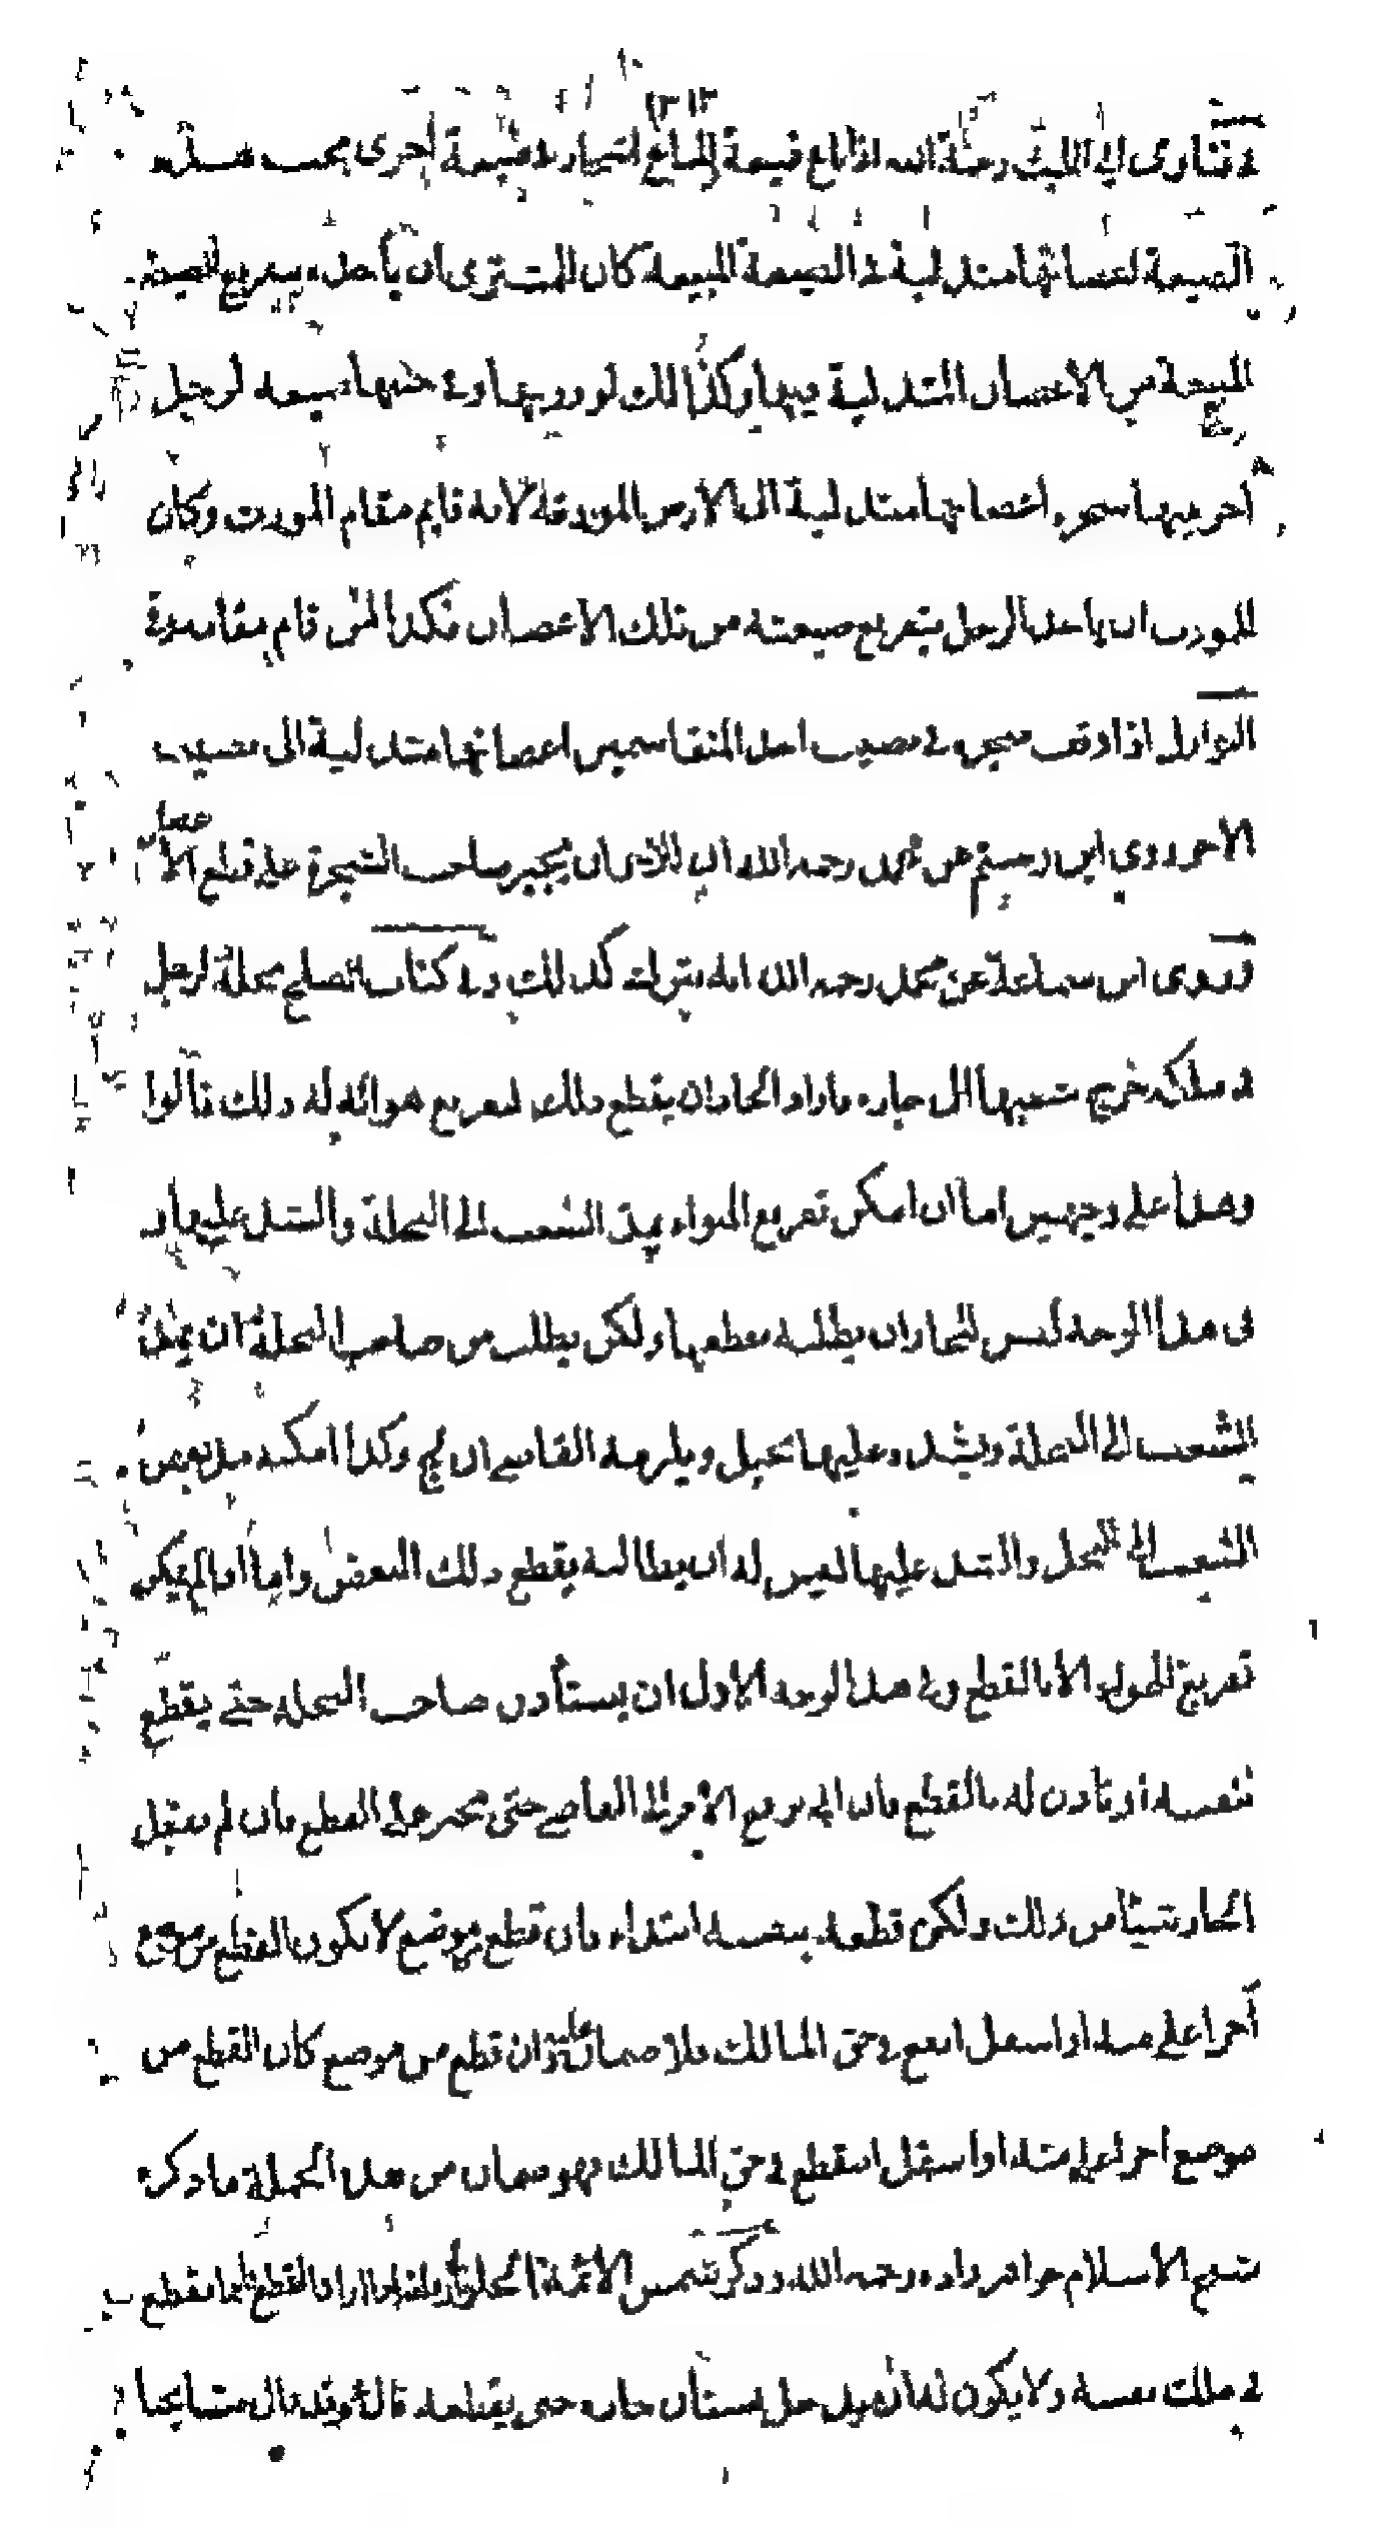 في فتاوى ابي الليث رحمة الله اذا باع ضيعة وللبائع اشجار في ضيعة أخرى بجنب هذه
الضيعة اغصانها متدلية في الضيعة المبيعة كان للمشترى ان يأخذه بتفريغ الضيعة
المبيعة من الاغصان المتدلية فيها وكذالك لو ورثها وفي جنبها ضيعة لرجل
أخر فيها شجرة اغصانها متدلية الى الارض الموروثة لانه قايم مقام المورث وكان
للمورث ان ياخذ الرجل بتفريغ ضيعته من تلك الاغصان فكذا لمن قام مقامه وفي
النوازل اذا وقف شجرة في نصيب احد المتقاسمين اغصانها متدلية الى نصيب
الاخر روي ابن رستم عن محمد رحمه الله ان للاخر ان يجبر صاحب الشجرة على قطع الاغصان
وروى ابن سماعة عن محمد رحمه الله انه يترك كذلك وفي كتاب الصلح نخلة لرجل
في ملكه خرج سعفها الى جاره فاراد الجار ان يقطع ذلك ليفرغ هوائه له ذلك قالوا
وهذا على وجهين اما ان امكن تفريغ الهواء بمد الشعب الى النخلة والشد عليها او
في هذا الوجه ليس للجار ان يطلبه بقطعها ولكن يطلب من صاحب النخلة ان يمد
الشعب الى النخلة ويشد وعليها بحبل ويلزمه القاضي ان لج وكذا امكنه مد بعض
الشعب الى النخل والشد عليها ليس له ان يطالبه بقطع ذلك البعض واما اذا لم يمكن
تفريغ الهواء الا بالقطع وفي هذا الوجه الاولى ان يستأذن صاحب النخلة حتى يقطع
بنفسه او ياذن له بالقطع فان ابى يرفع الامر الى القاضي حتى يجبر على القطع فان لم يفعل
الجار شيئا من ذلك ولكن قطعه بنفسه ابتداء فان قطع من موضع لا يكون القطع من موضع
أخر اعلى منه او اسفل انفع في حق المالك فلا ضمان عليه وان قطع من موضع كان القطع من
موضع اخر اعلى منه او اسفل انقطع في حق المالك فهو ضمان من هذه الجملة ما ذكره
شيخ الاسلام خواهر زاده رحمه الله وذكر شمس الائمة الحلواني اذا اراد القطع فانما يقطع
في ملك نفسه ولا يكون له ان يدخل بستان جاره حتى يقطعه قال وقد قال مشايخنا